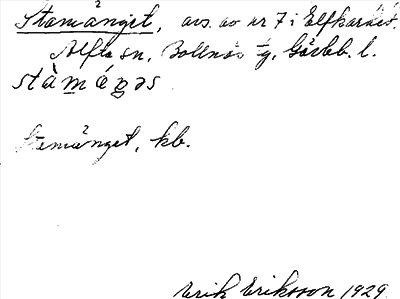 Stamånget, avs. av nr 7 i Elfkarhed.
Alfta sn, Bollnäs tg, Gävleb. l.
stàmáŋəs
Stemånget, kb.
Erik Eriksson 1929.